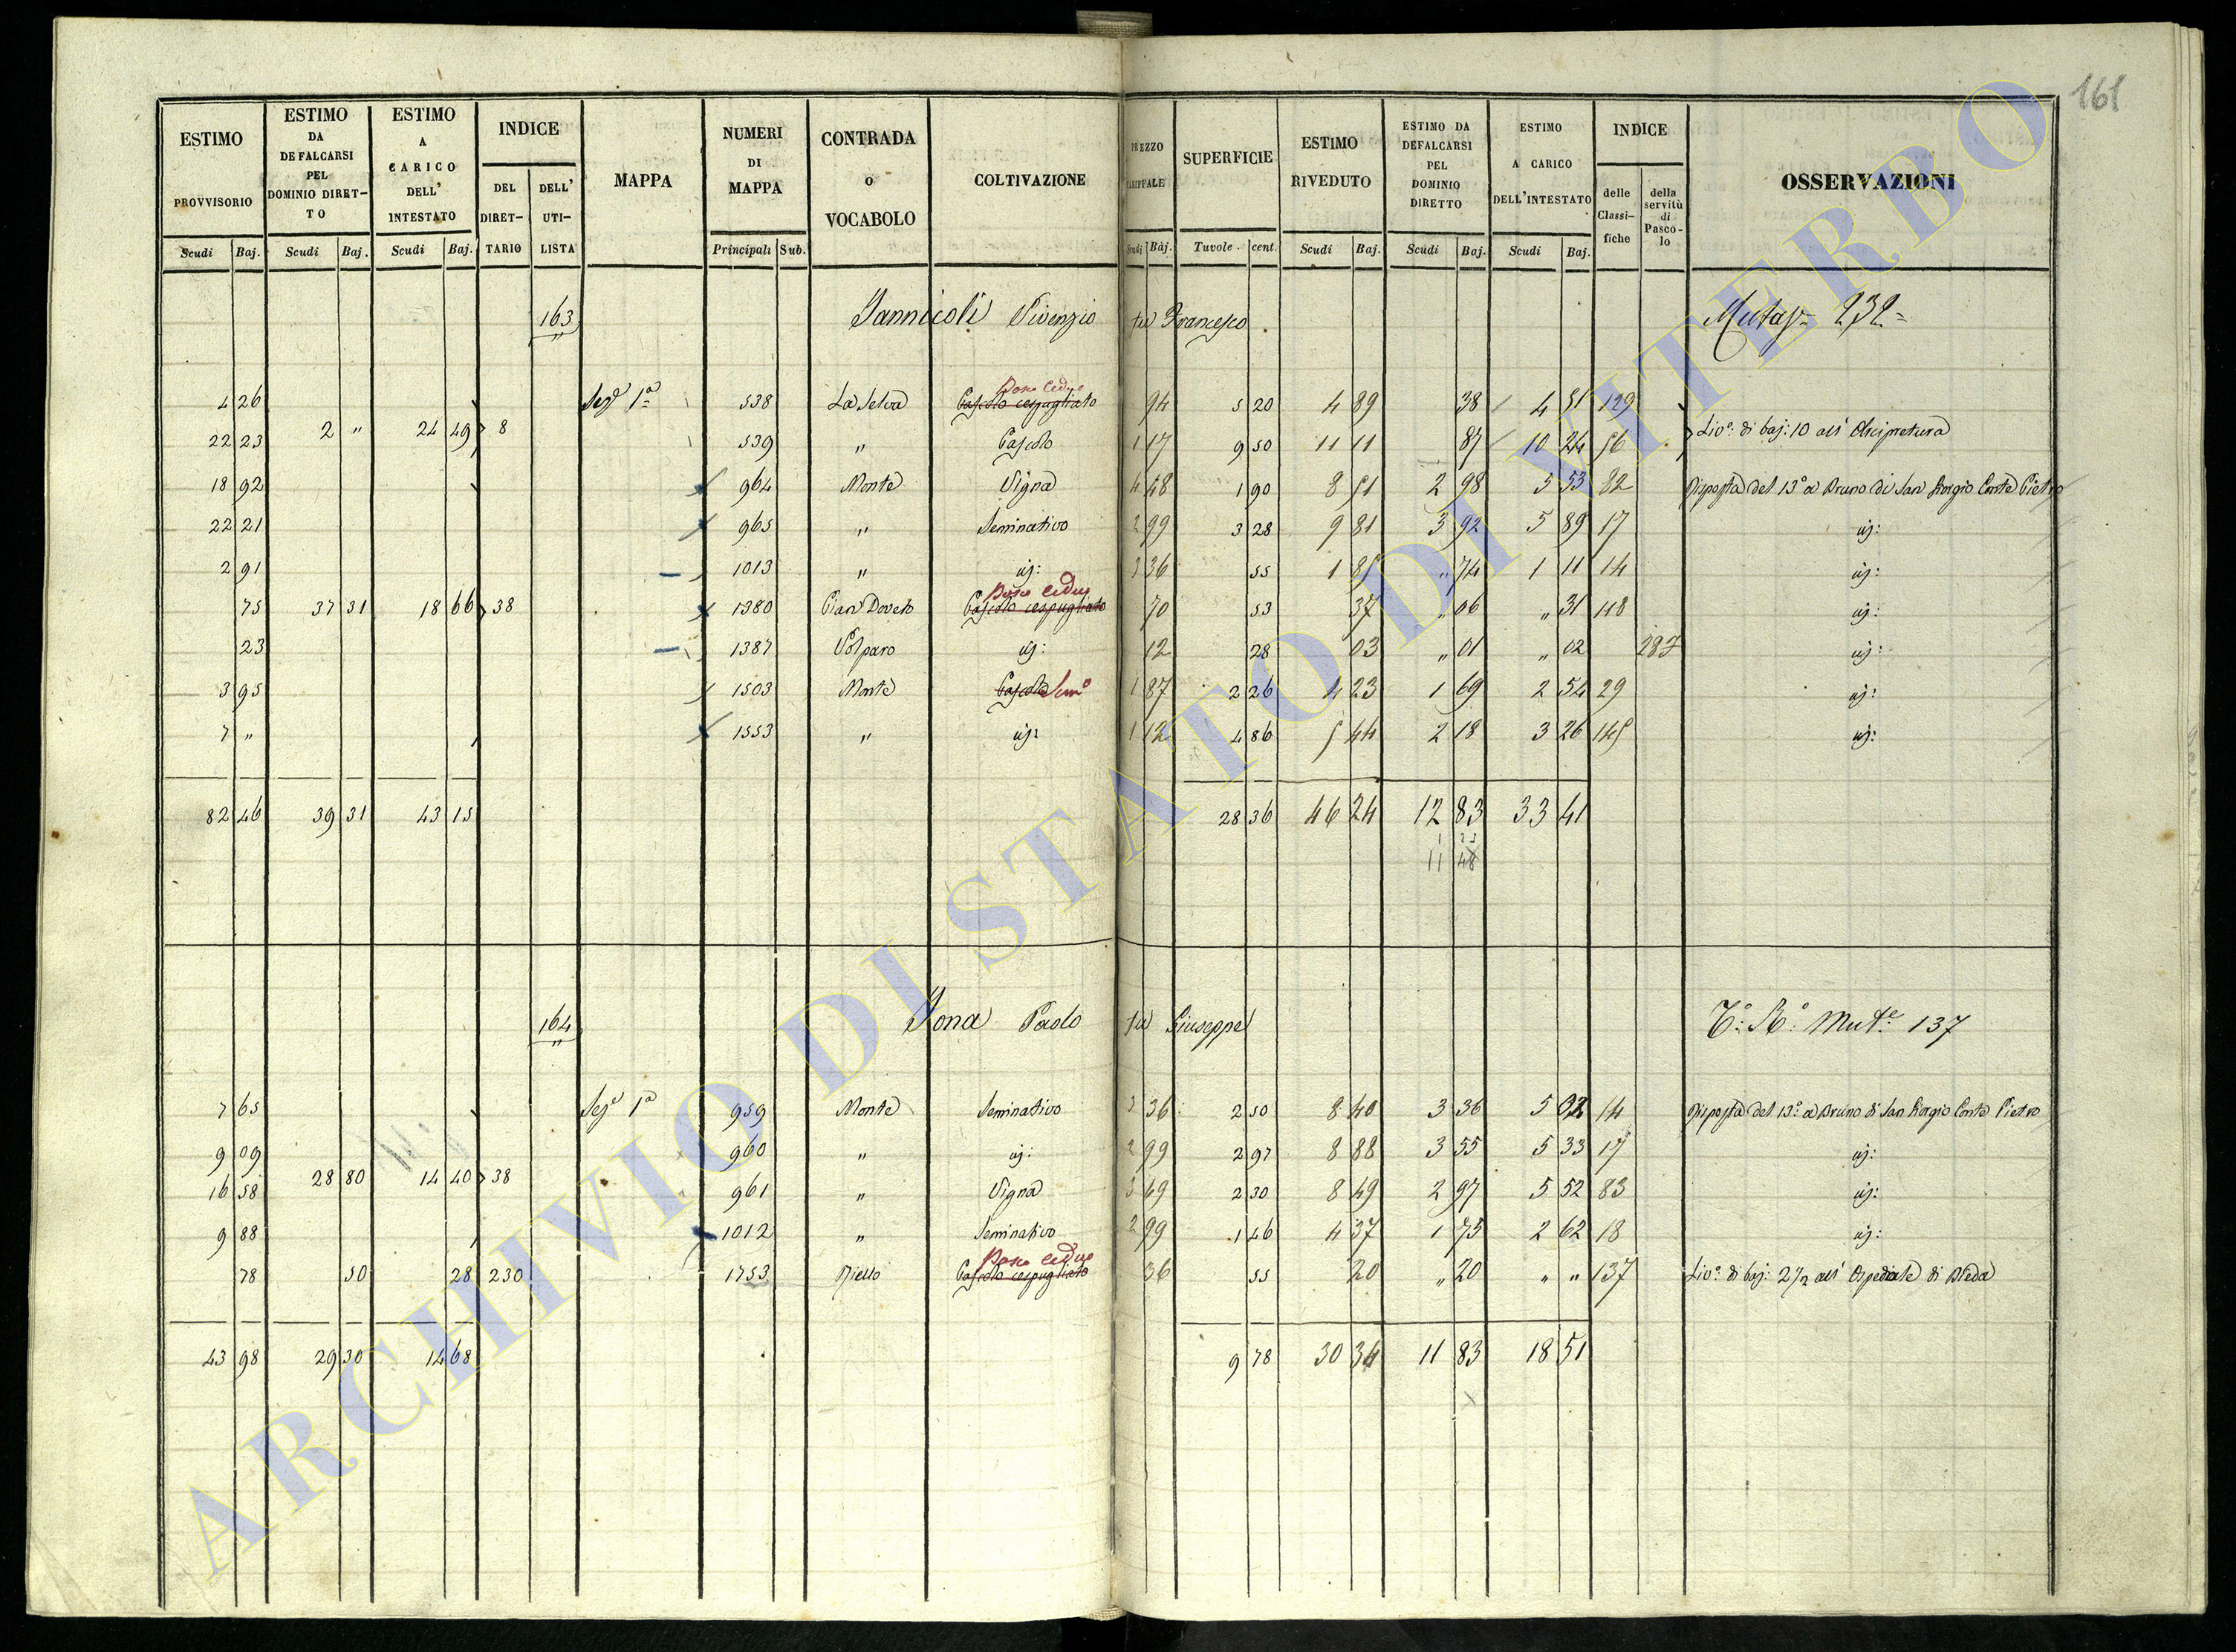 161
ESTIMO PROVVISORIO Scudi Baj.
ESTIMO DA DEFALCARSI PEL DOMINIO DIRETTO Scudi Baj.
ESTIMO A CARICO DELL' INTESTATO Scudi Baj.
INDICE DEL DIRETTARIO DELL' UTILISTA
MAPPA
NUMERI DI MAPPA Principali Sub.
CONTRADA o VOCABOLO
COLTIVAZIONE
PREZZO TARIFFALE Scudi Baj.
SUPERFICIE Tavole cent.
ESTIMO RIVEDUTO Scudi Baj.
ESTIMO DA DEFALCARSI PEL DOMINIO DIRETTO Scudi Baj.
ESTIMO A CARICO DELL'INTESTATO Scudi Baj.
INDICE delle Classifiche della servitù di Pascolo
OSSERVAZIONI
163 Jannicoli Vivenzio fu Francesco Mutaz. 232
4 26 Sez. 1a 538 La Selva Pascolo cespugliato Bosco Ceduo 94 5 20 4 89 38 4 51 129
2 " 24 49 8 Livo: di baj: 10 all' Arcipretura
22 23 539 " Pascolo 1 17 9 50 11 11 87 10 24 56
18 92 964 Monte Vigna 4 48 1 90 8 51 2 98 5 53 82 Risposta del 13° a Bruno di San Giorgio Conte Pietro
22 21 965 " Seminativo 2 99 3 28 9 81 3 92 5 89 17 id:
2 91 1013 " id: 3 36 55 1 85 " 74 1 11 14 id:
75 37 31 18 66 38 1380 Pian Doveto Pascolo cespugliato Bosco Ceduo 70 53 37 " 06 " 31 118 id:
23 1387 Volparo id: 12 28 03 " 01 " 02 287 id:
3 95 1503 Monte Pascolo Semo 1 87 2 26 4 23 1 69 2 54 29 id:
7 " 1553 " id: 1 12 4 86 5 44 2 18 3 26 145 id:
82 46 39 31 43 15 28 36 46 24 12 83 33 41
11 48
164 Jona Paolo fu Giuseppe T.° R.° Mut.e 137
7 65 Sez. 1a 959 Monte Seminativo 3 36 2 50 8 40 3 36 5 04 14 Risposta del 13° a Bruno di San Giorgio Conte Pietro
9 09 960 " id: 2 99 2 97 8 88 3 55 5 33 17 id:
28 80 14 40 38
16 58 961 " Vigna 3 69 2 30 8 49 2 97 5 52 83 id:
9 88 1012 " Seminativo 2 99 1 46 4 37 1 75 2 62 18 id:
78 50 28 230 1753 Riello Pascolo cespugliato Bosco Ceduo 36 55 20 " 20 " " 137 Livo: di baj: 2 1/2 all' Ospedale di Bleda
43 98 29 30 14 68 9 78 30 34 11 83 18 51
ARCHIVIO DI STATO DI VITERBO